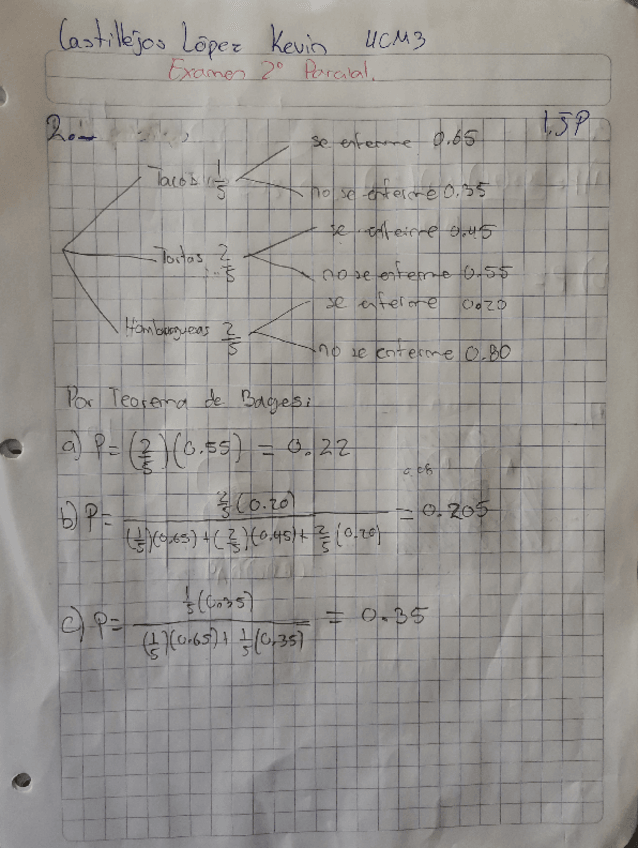 Castillejos López Kevin 4CM3
Examen 2° Parcial.
2.- 1.5P
se enferme 0.65
Tacos 1/5
no se enferme 0.35
se enferme 0.45
Tortas 2/5
no se enferme 0.55
se enferme 0.20
Hamburguesas 2/5
no se enferme 0.80
Por Teorema de Bayes:
a) P = (2/5)(0.55) = 0.22
b) P = 2/5(0.20) / (1/5)(0.65)+(2/5)(0.45)+2/5(0.20) = 0.205
c) P = 1/5(0.35) / (1/5)(0.65)+1/5(0.35) = 0.35